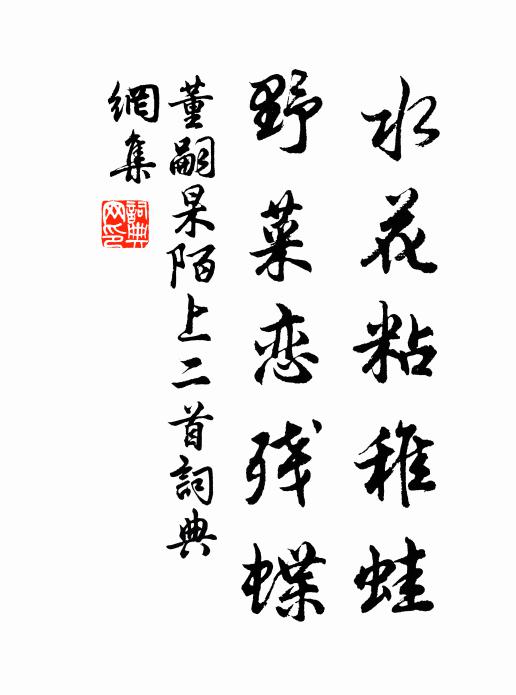 水花粘稚蛙
野菜恋残蝶
董嗣杲陌上二首詞典
網集
詞典網印